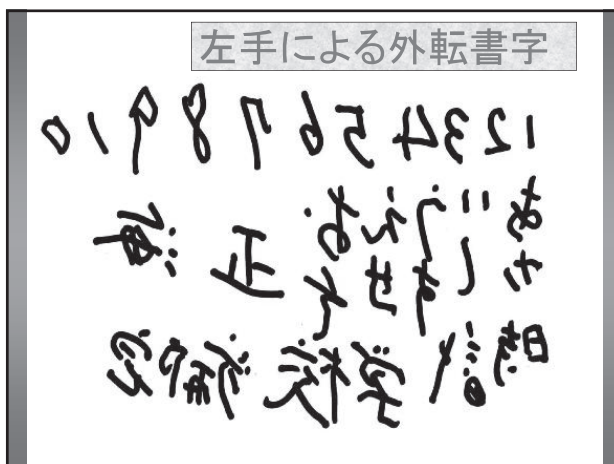 左手による外転書字
1 2 3 4 5 6 7 8 9 10
あいうえお
しすせそ 正 海
時計 学校